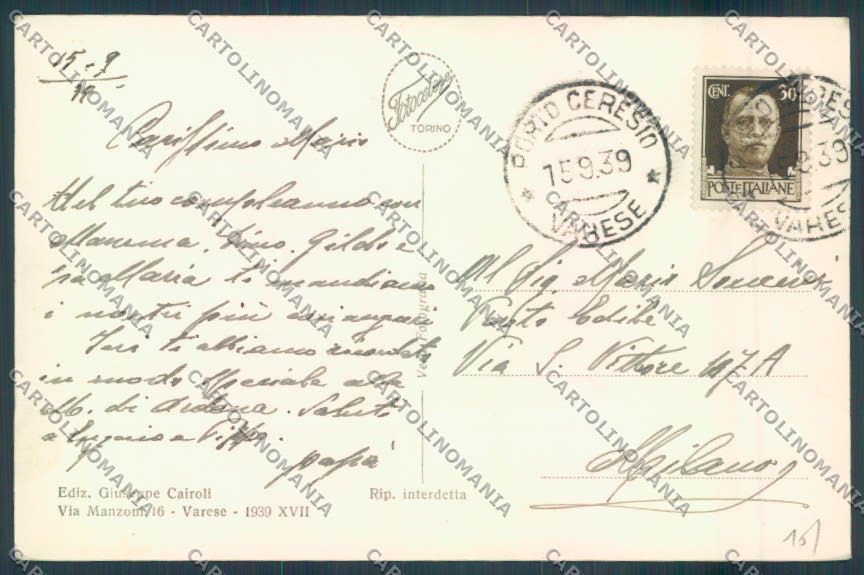 15-9
39
Carissimo Mario
Nel tuo compleanno con
Mamma, Gildo e
Maria ti mandiamo
i nostri più auguri
Ieri ti abbiamo ricordato
in modo speciale alla
M. di Ardena. Saluti
a e
papà
Fotocelere
TORINO
PORTO CERESIO
15.9.39
VARESE
CENT. 30
POSTE ITALIANE
Al Sig. Mario
Via S. Vittore 107 A
Milano
Vera Fotografia
Ediz. Giuseppe Cairoli
Via Manzoni 16 - Varese - 1939 XVII
Rip. interdetta
15/
CARTOLINOMANIA